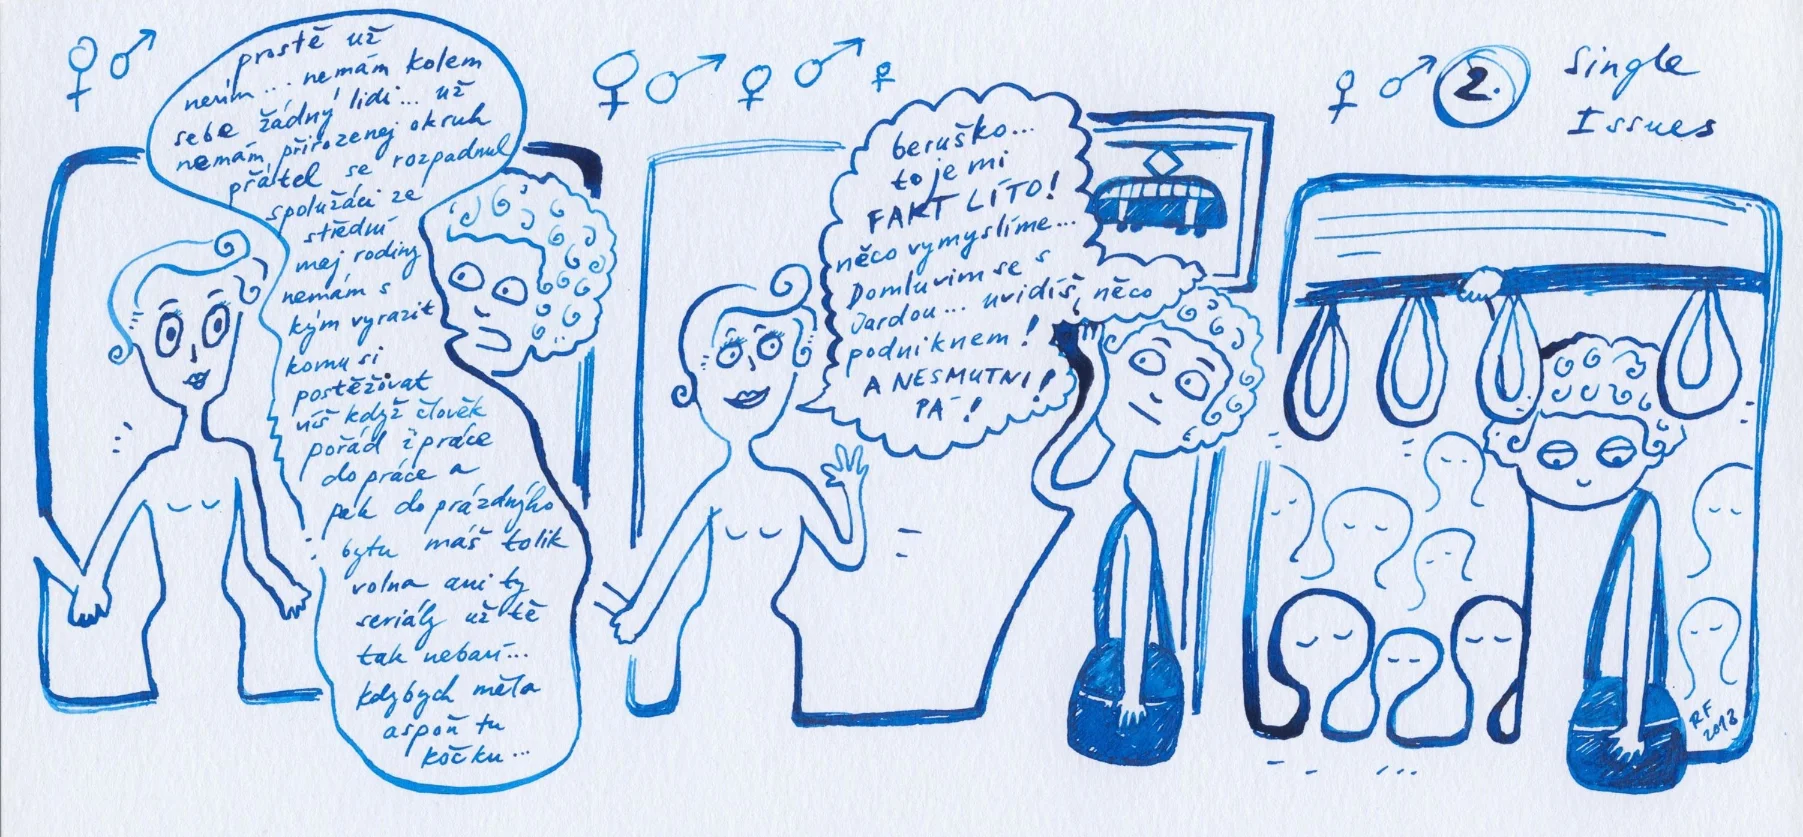 prostě už
nevím... nemám kolem
sebe žádný lidi... už
nemám přirozenej okruh
přátel se rozpadnul
spolužáci ze
střední
maj rodiny
nemám s
kým vyrazit
komu si
postěžovat
víš když člověk
pořád z práce
do práce a
pak do prázdnýho
bytu máš tolik
volna ani ty
seriály už tě
tak nebaví...
kdybych měla
aspoň tu
kočku...
beruško...
to je mi
FAKT LÍTO!
něco vymyslíme...
Domluvim se s
Jardou... uvidíš, něco
podniknem!
A NESMUTNI!
PA!
2.
Single
Issues
RF
2018